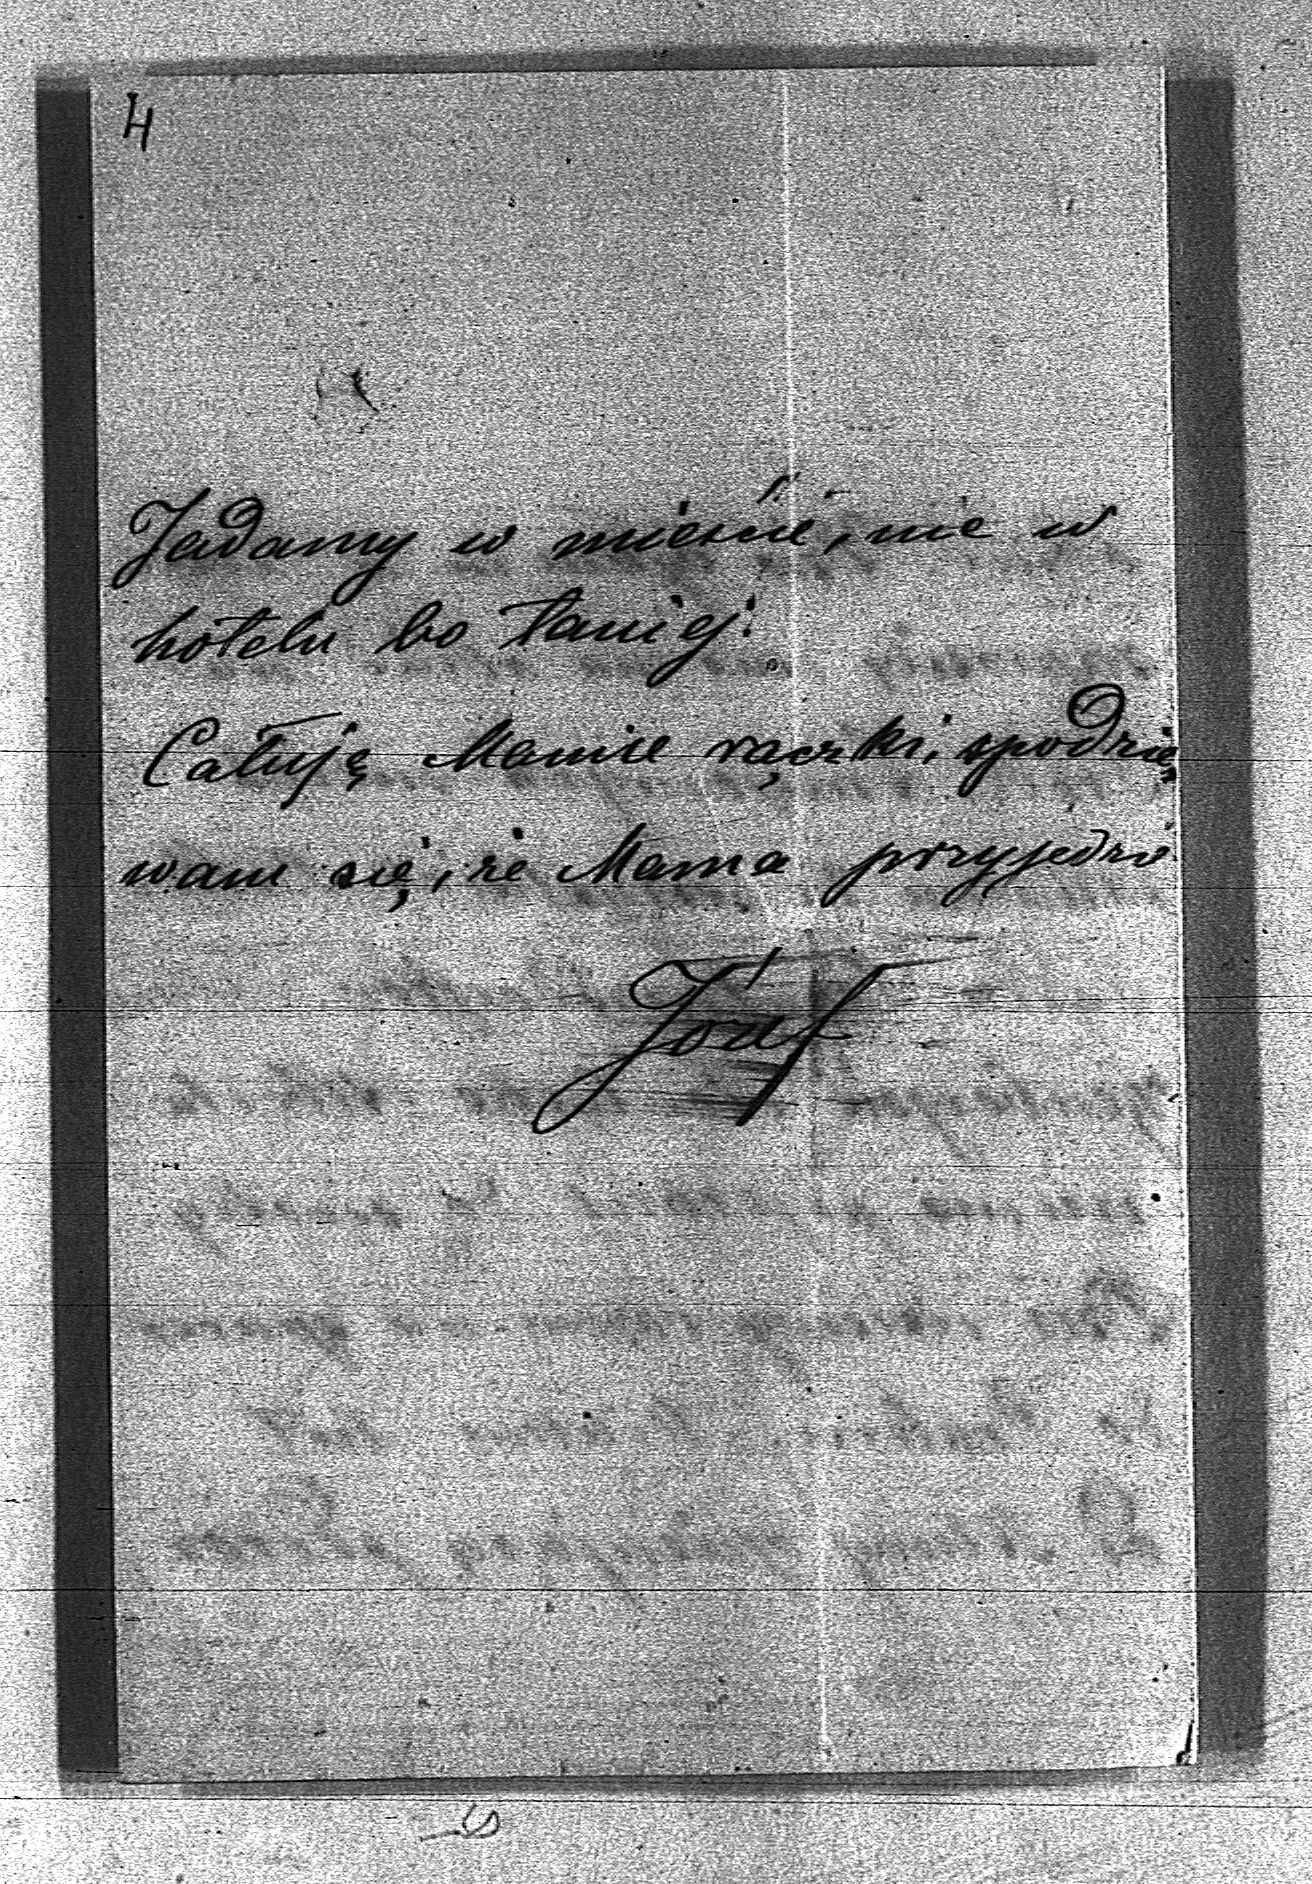 4
Jadamy w mieście, nie w
hotelu bo taniej.
Całuję Mamie rączki, spodzie
wam się, że Mama przyjedzie
Józef